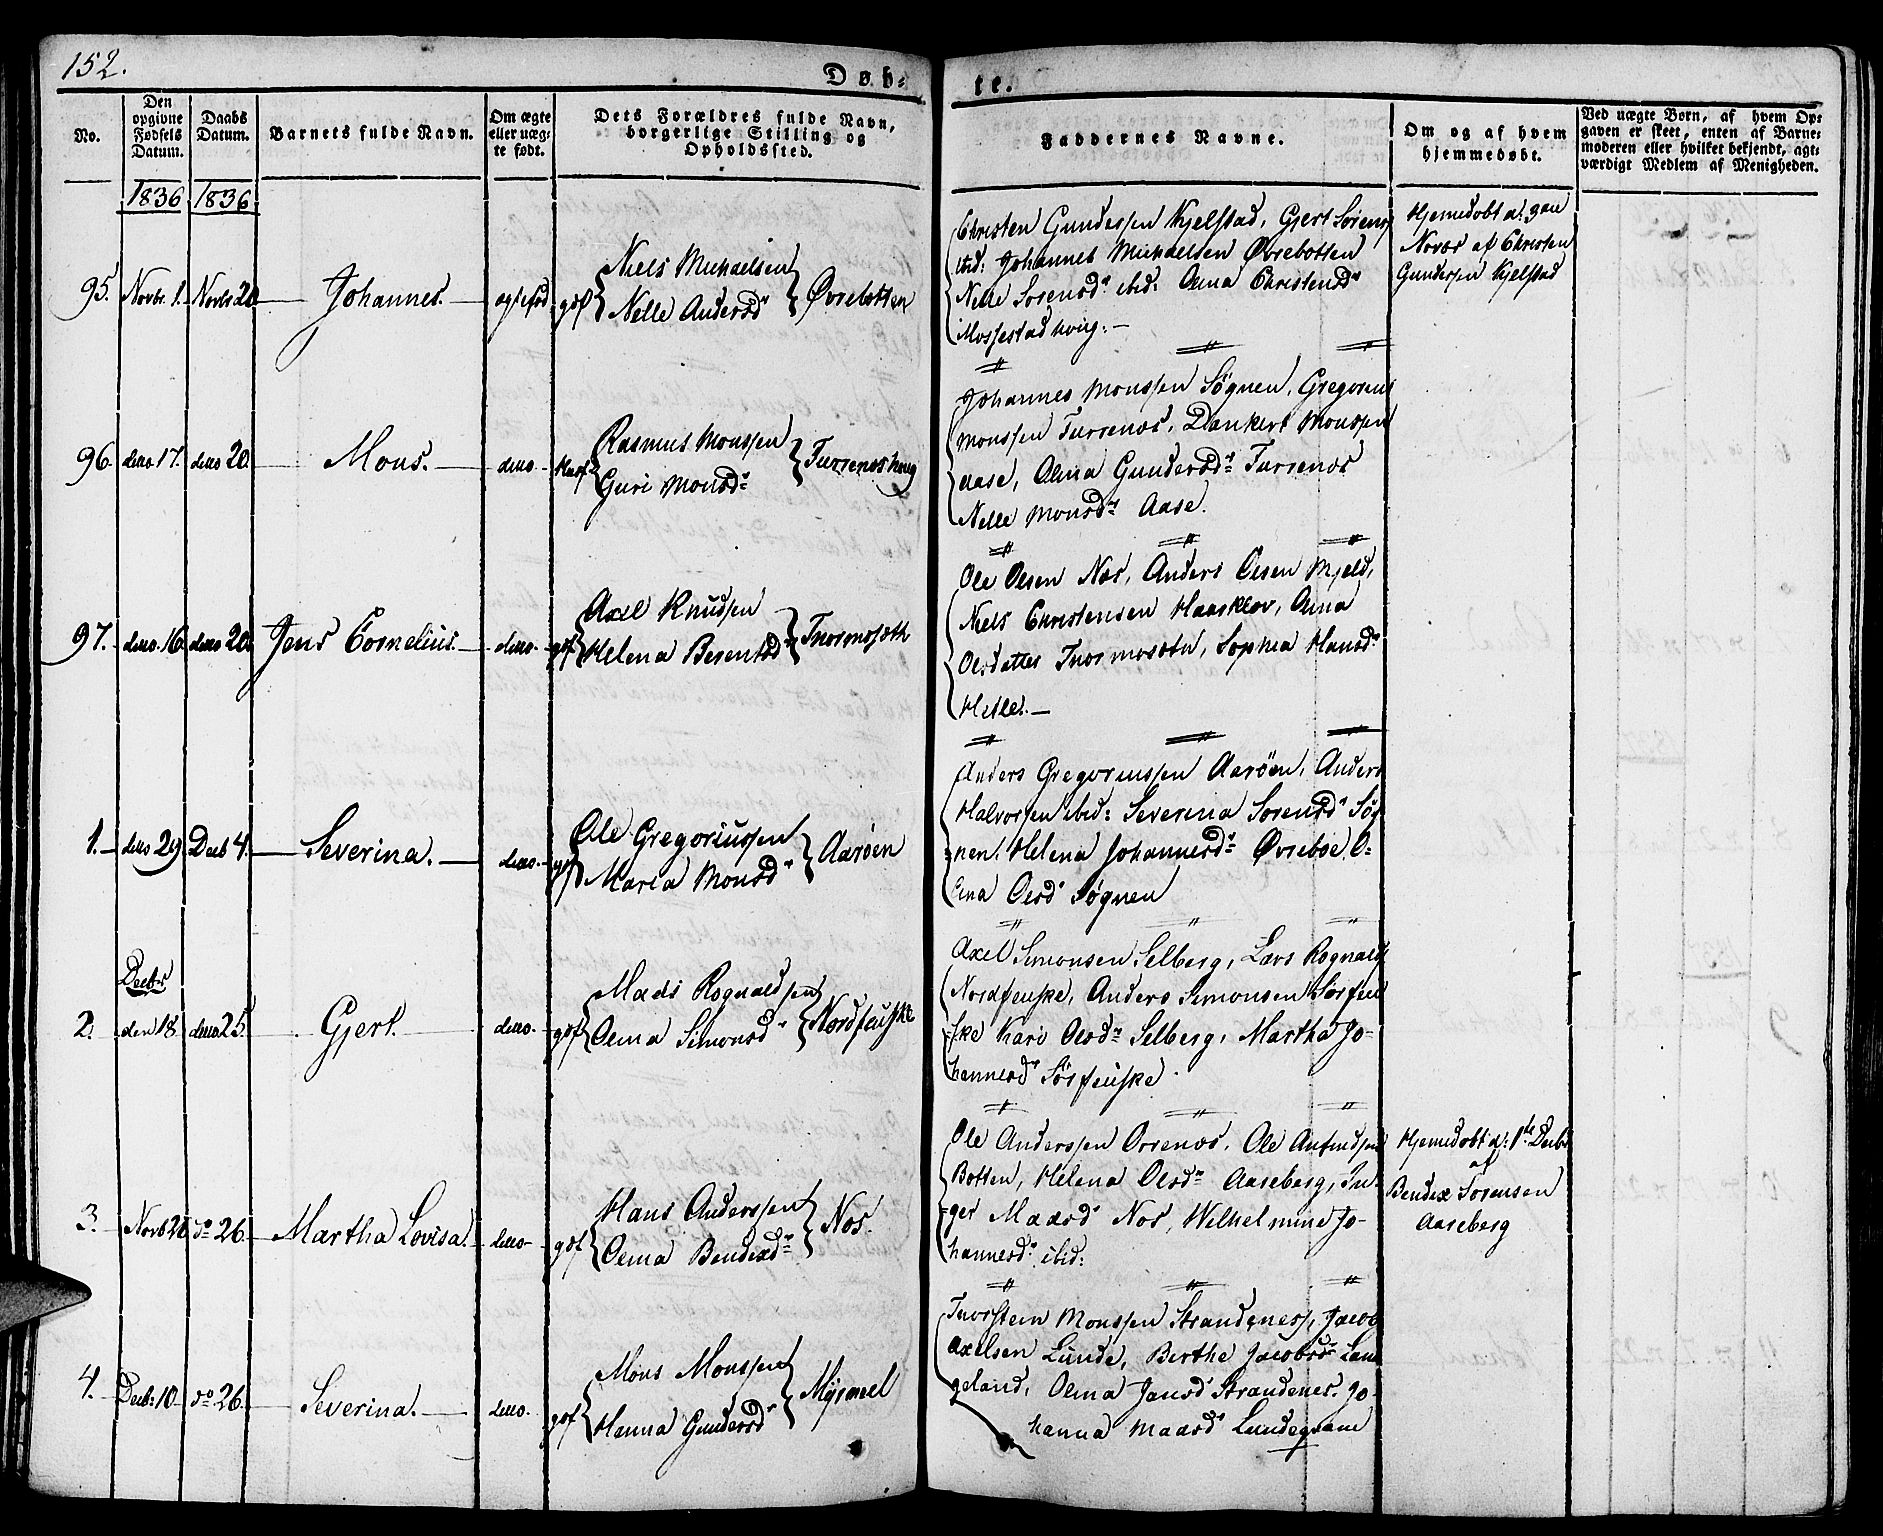 152.
Døb-
te.
No.
Den opgivne Fødsels Datum.
Daabs Datum.
Barnets fulde Navn.
Om ægte eller uæg- te født.
Dets Forældres fulde Navn, borgerlige Stilling og Opholdssted.
Faddernes Navne.
Om og af hvem hjemmedøbt.
Ved uægte Børn, af hvem Op-
gaven er skeet, enten af Barne-
moderen eller hvilket bekjendt, agt-
værdigt Medlem af Menigheden.
1836 1836
95. Novbr. 1. Novbr 20 Johannes. ægtefød gdf Niels Michaelsen
Nelle Andersd. Øvrebotten
Christen Gundersen Kjelstad, Gjert Sørens
ibid: Johannes Michaelsen Øvrebotten
Nelle Sørensd. ibid: Olina Christensd.
Mossestadhoug.
Hjemedøbt d: 3die
Novbr af Christen
Gundersen Kjelstad
96. detto 17. detto 20. Mons. detto. Huusf Rasmus Monssen
Guri Monsd. Turrenæshoug
Johannes Monssen Søgnen, Gregorius
Monssen Turrenæs, Dankert Monssen
Aase, Olina Gundersd. Turrenæs
Nelle Monsd. Aase.
97. detto. 16 detto 20. Jens Cornelius. detto. gdf Axel Knudsen
Helena Berentsd. Thormosæth
Ole Olsen Næs, Anders Olsen Mjeld,
Niels Christensen Haasklov, Olina
Olsdatter Thormosæth, Sophia Hansd.
Hetle.
1. detto 29 Decb 4. Severina. detto. gdf Ole Gregoriussen
Maria Monsd. Aarøen
Anders Gregoriussen Aarøen, Anders
Halvorsen ibid: Severina Sørensd. Søg-
nen. Helena Johannesd. Øvrebøe. O-
lina Olsd. Søgnen
Decbr
2. den 18. detto 25. Gjert. detto. gdf Mads Rognaldsen
Olina Simonsd. Nordfeuske
Axel Simonsen Selberg, Lars Rognalds
Nordfeuske, Anders Simonsen Sørfeu
ske Kari Olsd. Selberg, Martha Jo-
hannesd. Sørfeuske.
3. Novb 26 do 26. Martha Lovisa. detto gdf Hans Anderssen
Olina Bendixd. Næs.
Ole Anderssen Orrenæs. Ole Anfindsen
Botten, Helena Olsd. Aaseberg, In-
ger Madsd. Næs, Wilhelmine Jo-
hannesd. ibid:
Hjemedøbt d: 1ste Decbr
af
Bendix Torensen
Aaseberg
4. Decb: 10 do 26. Severina. detto. gdf Mons Monssen
Hanna Gundersd. Myrmel
Thorstein Monssen Strandenes, Jacob
Axelsen Lunde, Berthe Jacobsd. Lan
geland, Olina Jansd. Strandenes. Jo-
hanna Madsd. Lundegrane